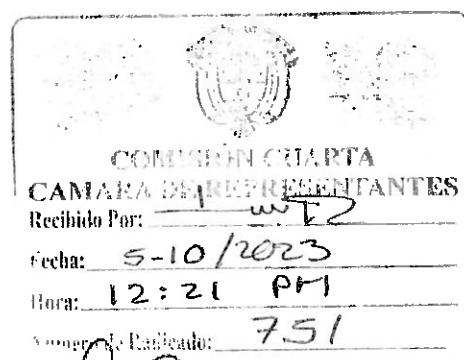 COMISIÓN CUARTA
CAMARA DE REPRESENTANTES
Recibido Por:
Fecha: 5-10/2023
Hora: 12:21 PM
Numero de Radicado: 751